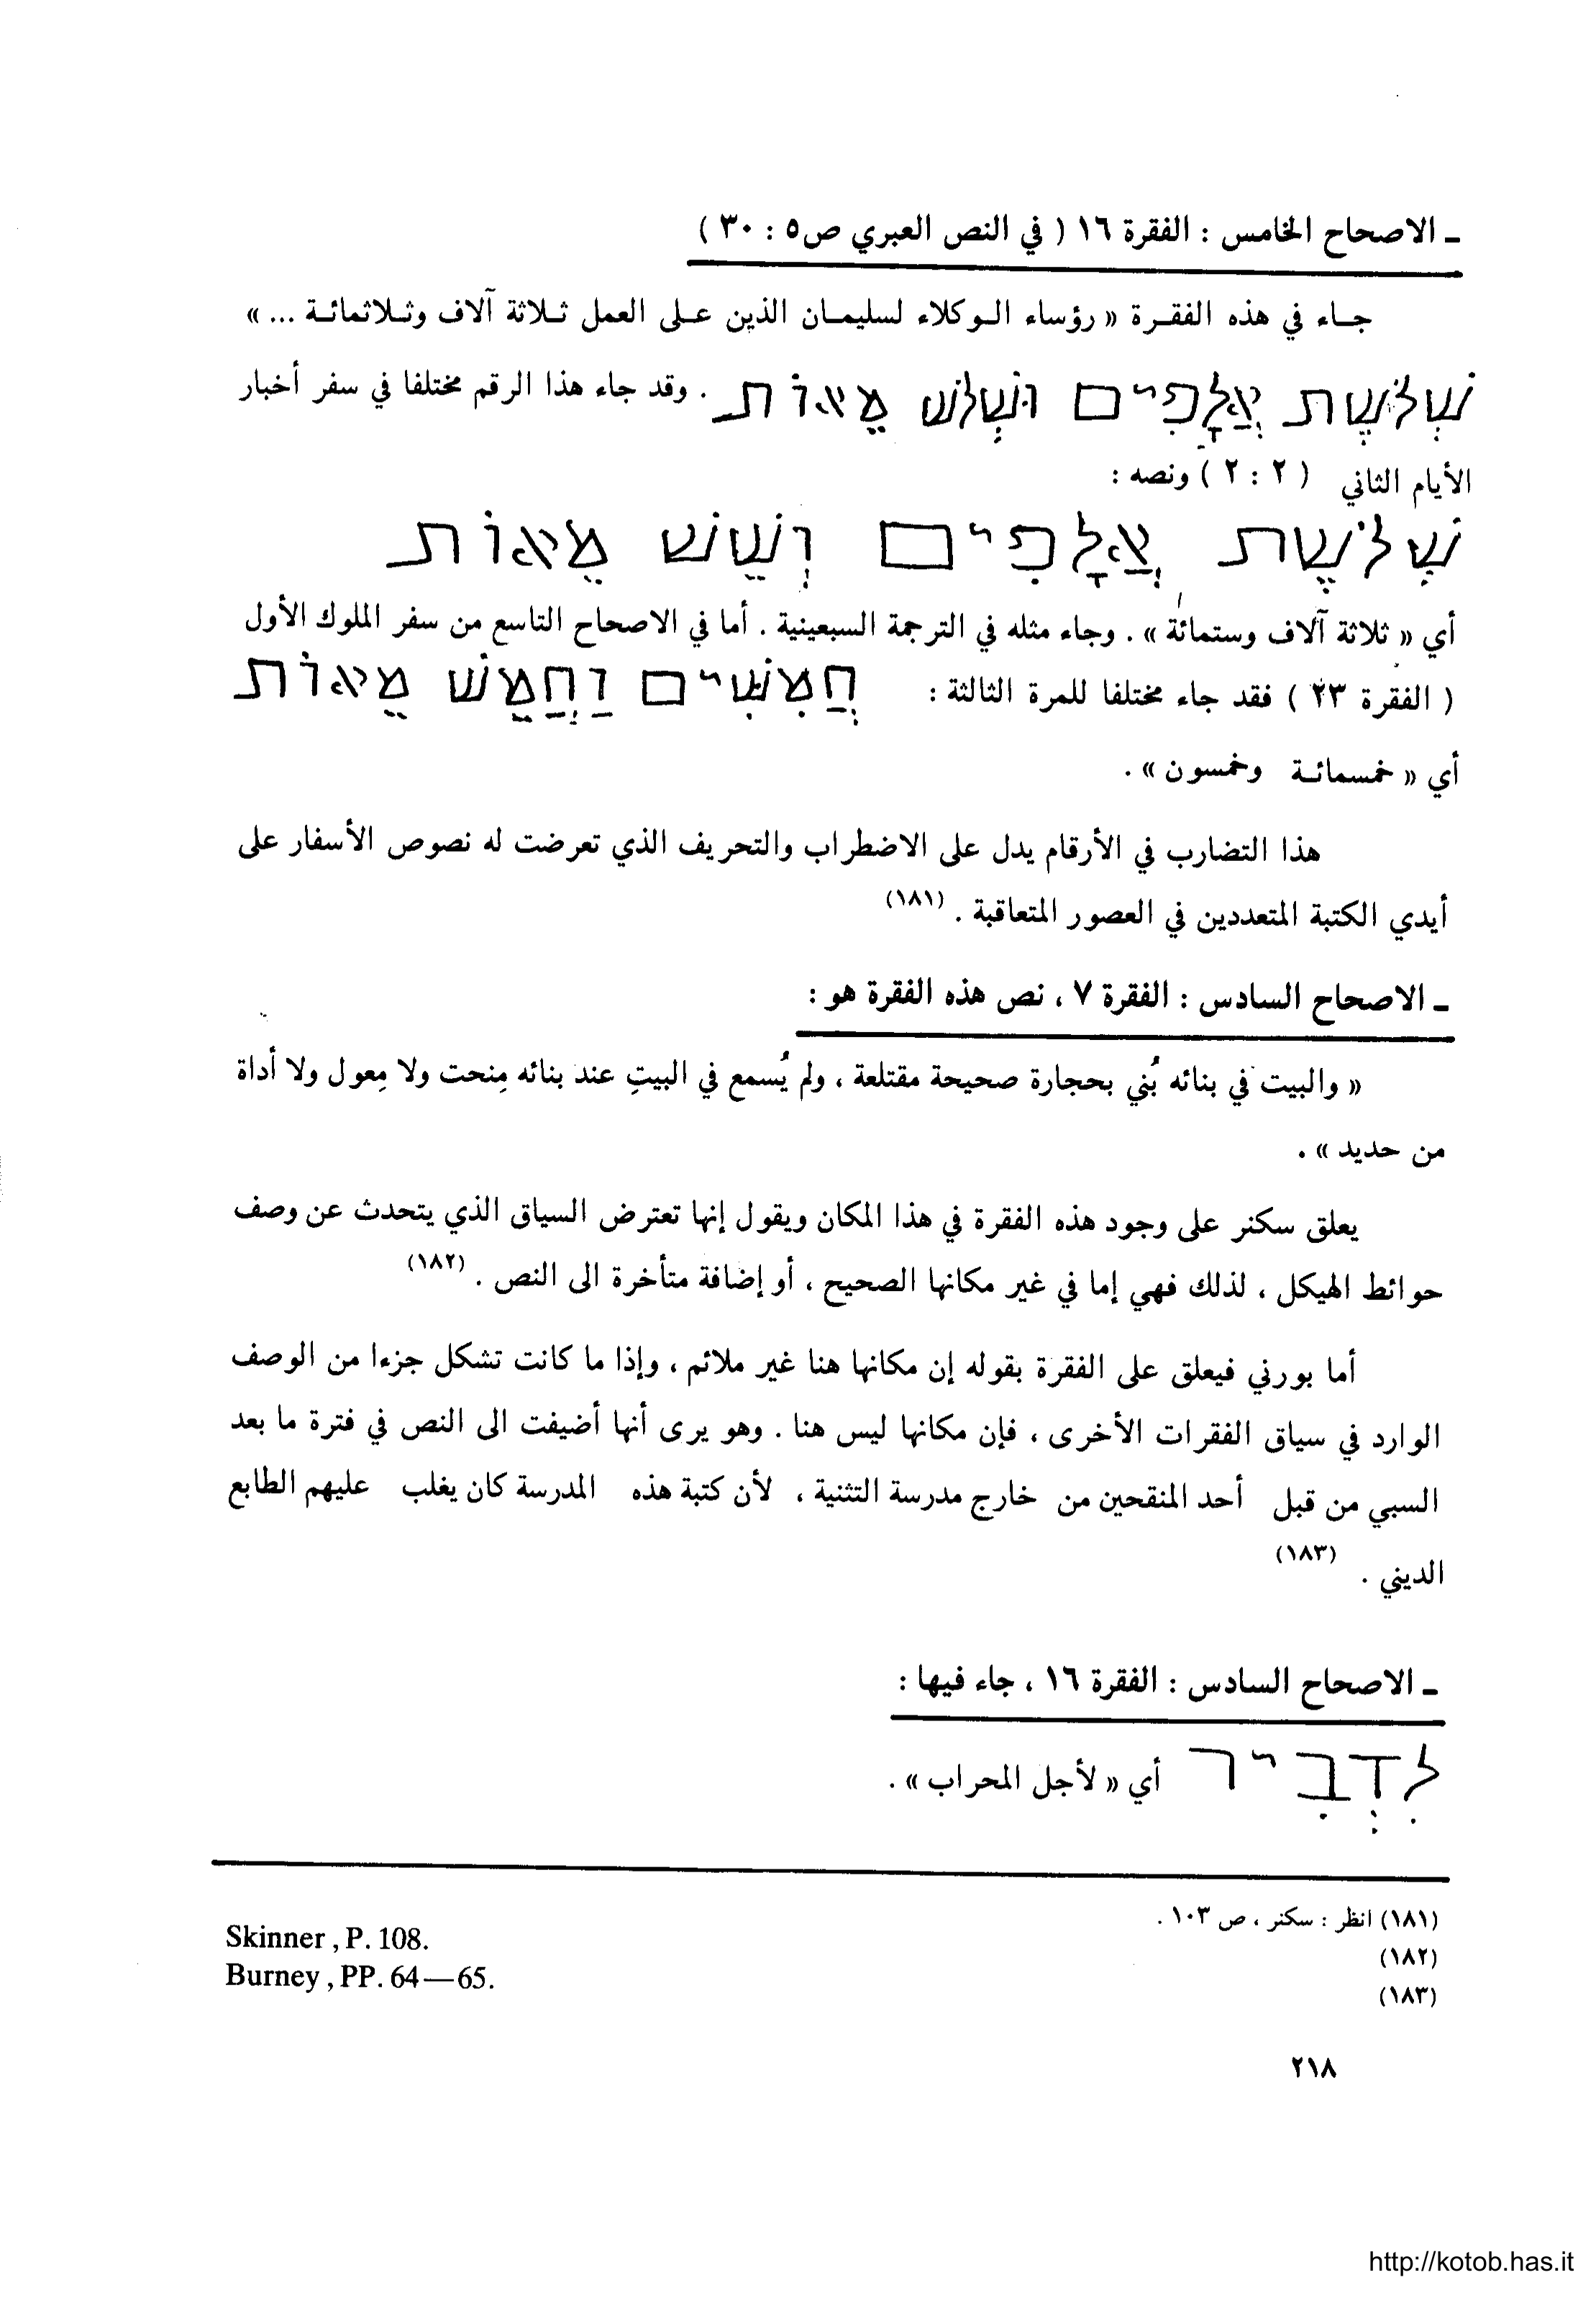 ـ الاصحاح الخامس : الفقرة ١٦ ( في النص العبري ص٥ : ٣٠ )
جـاء في هذه الفقـرة « رؤساء الـوكلاء لسليمـان الذين عـلى العمل ثـلاثة آلاف وثـلاثمائـة ... »
שְׁלֹשֶׁת אֲלָפִים וּשְׁלֹשׁ מֵאוֹת . وقد جاء هذا الرقم مختلفا في سفر أخبار
الأيام الثاني ( ٢ : ٢ ) ونصه :
שְׁלֹשֶׁת אֲלָפִים וְשֵׁשׁ מֵאוֹת
أي « ثلاثة آلاف وستمائة » . وجاء مثله في الترجمة السبعينية . أما في الاصحاح التاسع من سفر الملوك الأول
( الفقرة ٢٣ ) فقد جاء مختلفا للمرة الثالثة : חֲמִשִּׁים וַחֲמֵשׁ מֵאוֹת
أي « خمسمائـة وخمسون » .
هذا التضارب في الأرقام يدل على الاضطراب والتحريف الذي تعرضت له نصوص الأسفار على
أيدي الكتبة المتعددين في العصور المتعاقبة . (١٨١)
ـ الاصحاح السادس : الفقرة ٧ ، نص هذه الفقرة هو :
« والبيت في بنائه بُني بحجارة صحيحة مقتلعة ، ولم يُسمع في البيتِ عند بنائه مِنحت ولا مِعول ولا أداة
من حديد » .
يعلق سكنر على وجود هذه الفقرة في هذا المكان ويقول إنها تعترض السياق الذي يتحدث عن وصف
حوائط الهيكل ، لذلك فهي إما في غير مكانها الصحيح ، أو إضافة متأخرة الى النص . (١٨٢)
أما بورني فيعلق على الفقرة بقوله إن مكانها هنا غير ملائم ، وإذا ما كانت تشكل جزءا من الوصف
الوارد في سياق الفقرات الأخرى ، فإن مكانها ليس هنا . وهو يرى أنها أضيفت الى النص في فترة ما بعد
السبي من قبل أحد المنقحين من خارج مدرسة التثنية ، لأن كتبة هذه المدرسة كان يغلب عليهم الطابع
الديني . (١٨٣)
ـ الاصحاح السادس : الفقرة ١٦ ، جاء فيها :
לִדְבִיר أي « لأجل المحراب » .
(١٨١) انظر : سكنر ، ص ١٠٣ .
(١٨٢) Skinner , P. 108.
(١٨٣) Burney , PP. 64—65.
٢١٨
http://kotob.has.it